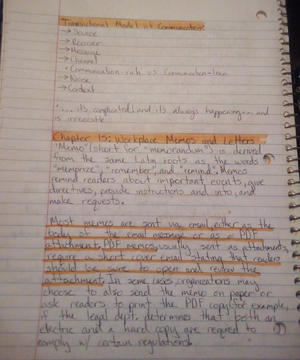 Transactional Model of Communication:
→ Source
→ Receiver
→ Message
→ Channel
• Communication-rich vs Communication-lean
→ Noise
→ Context
"... it's complicated, and its always happening... and is irreversible"
Chapter 15: Workplace Memos and Letters
"Memo" (short for "memorandum") is derived
from the same Latin roots as the words
"memorize", "remember", and "remind". Memos
remind readers about important events, give
directives, provide instructions and info, and
make requests.
Most memos are sent via email, either as the
body of the email message or as a PDF
attachment. PDF memos, usually sent as attachments,
require a short cover email stating that readers
should be sure to open and review the
attachment. In some cases, organizations may
choose to also send the memo on paper or
ask readers to print the PDF copy (for example,
if the legal dept. determines that both an
electric and a hard copy are required to
comply w/ certain regulations